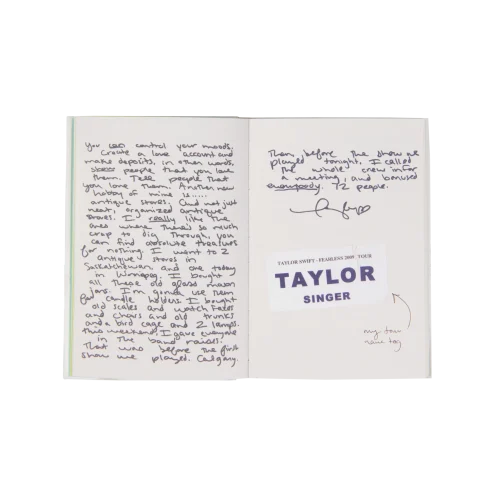 You can control your moods.
Create a love account and
make deposits, in other words,
people that you love
them. Tell people that
you love them. Another new
hobby of mine is.....
antique stores. And not just
neat, organized antique
stores. I really like the
ones where there's so much
crap to dig through, you
can find absolute treasures
for nothing. I went to 2
antique stores in
Saskatchewan, and one today
in Winnipeg. I bought
all these old glass mason
jars. I'm gonna use them
for candle holders. I bought
old scales and watch faces
and chairs and old trunks
and a bird cage and 2 lamps.
This weekend, I gave everyone
in the band raises.
That was before the first
show we played. Calgary.
Then, before the show we
played tonight, I called
the whole crew in for
a meeting, and bonused
everybody. 72 people.
TAYLOR SWIFT - FEARLESS 2009 TOUR
TAYLOR
SINGER
my tour
name tag